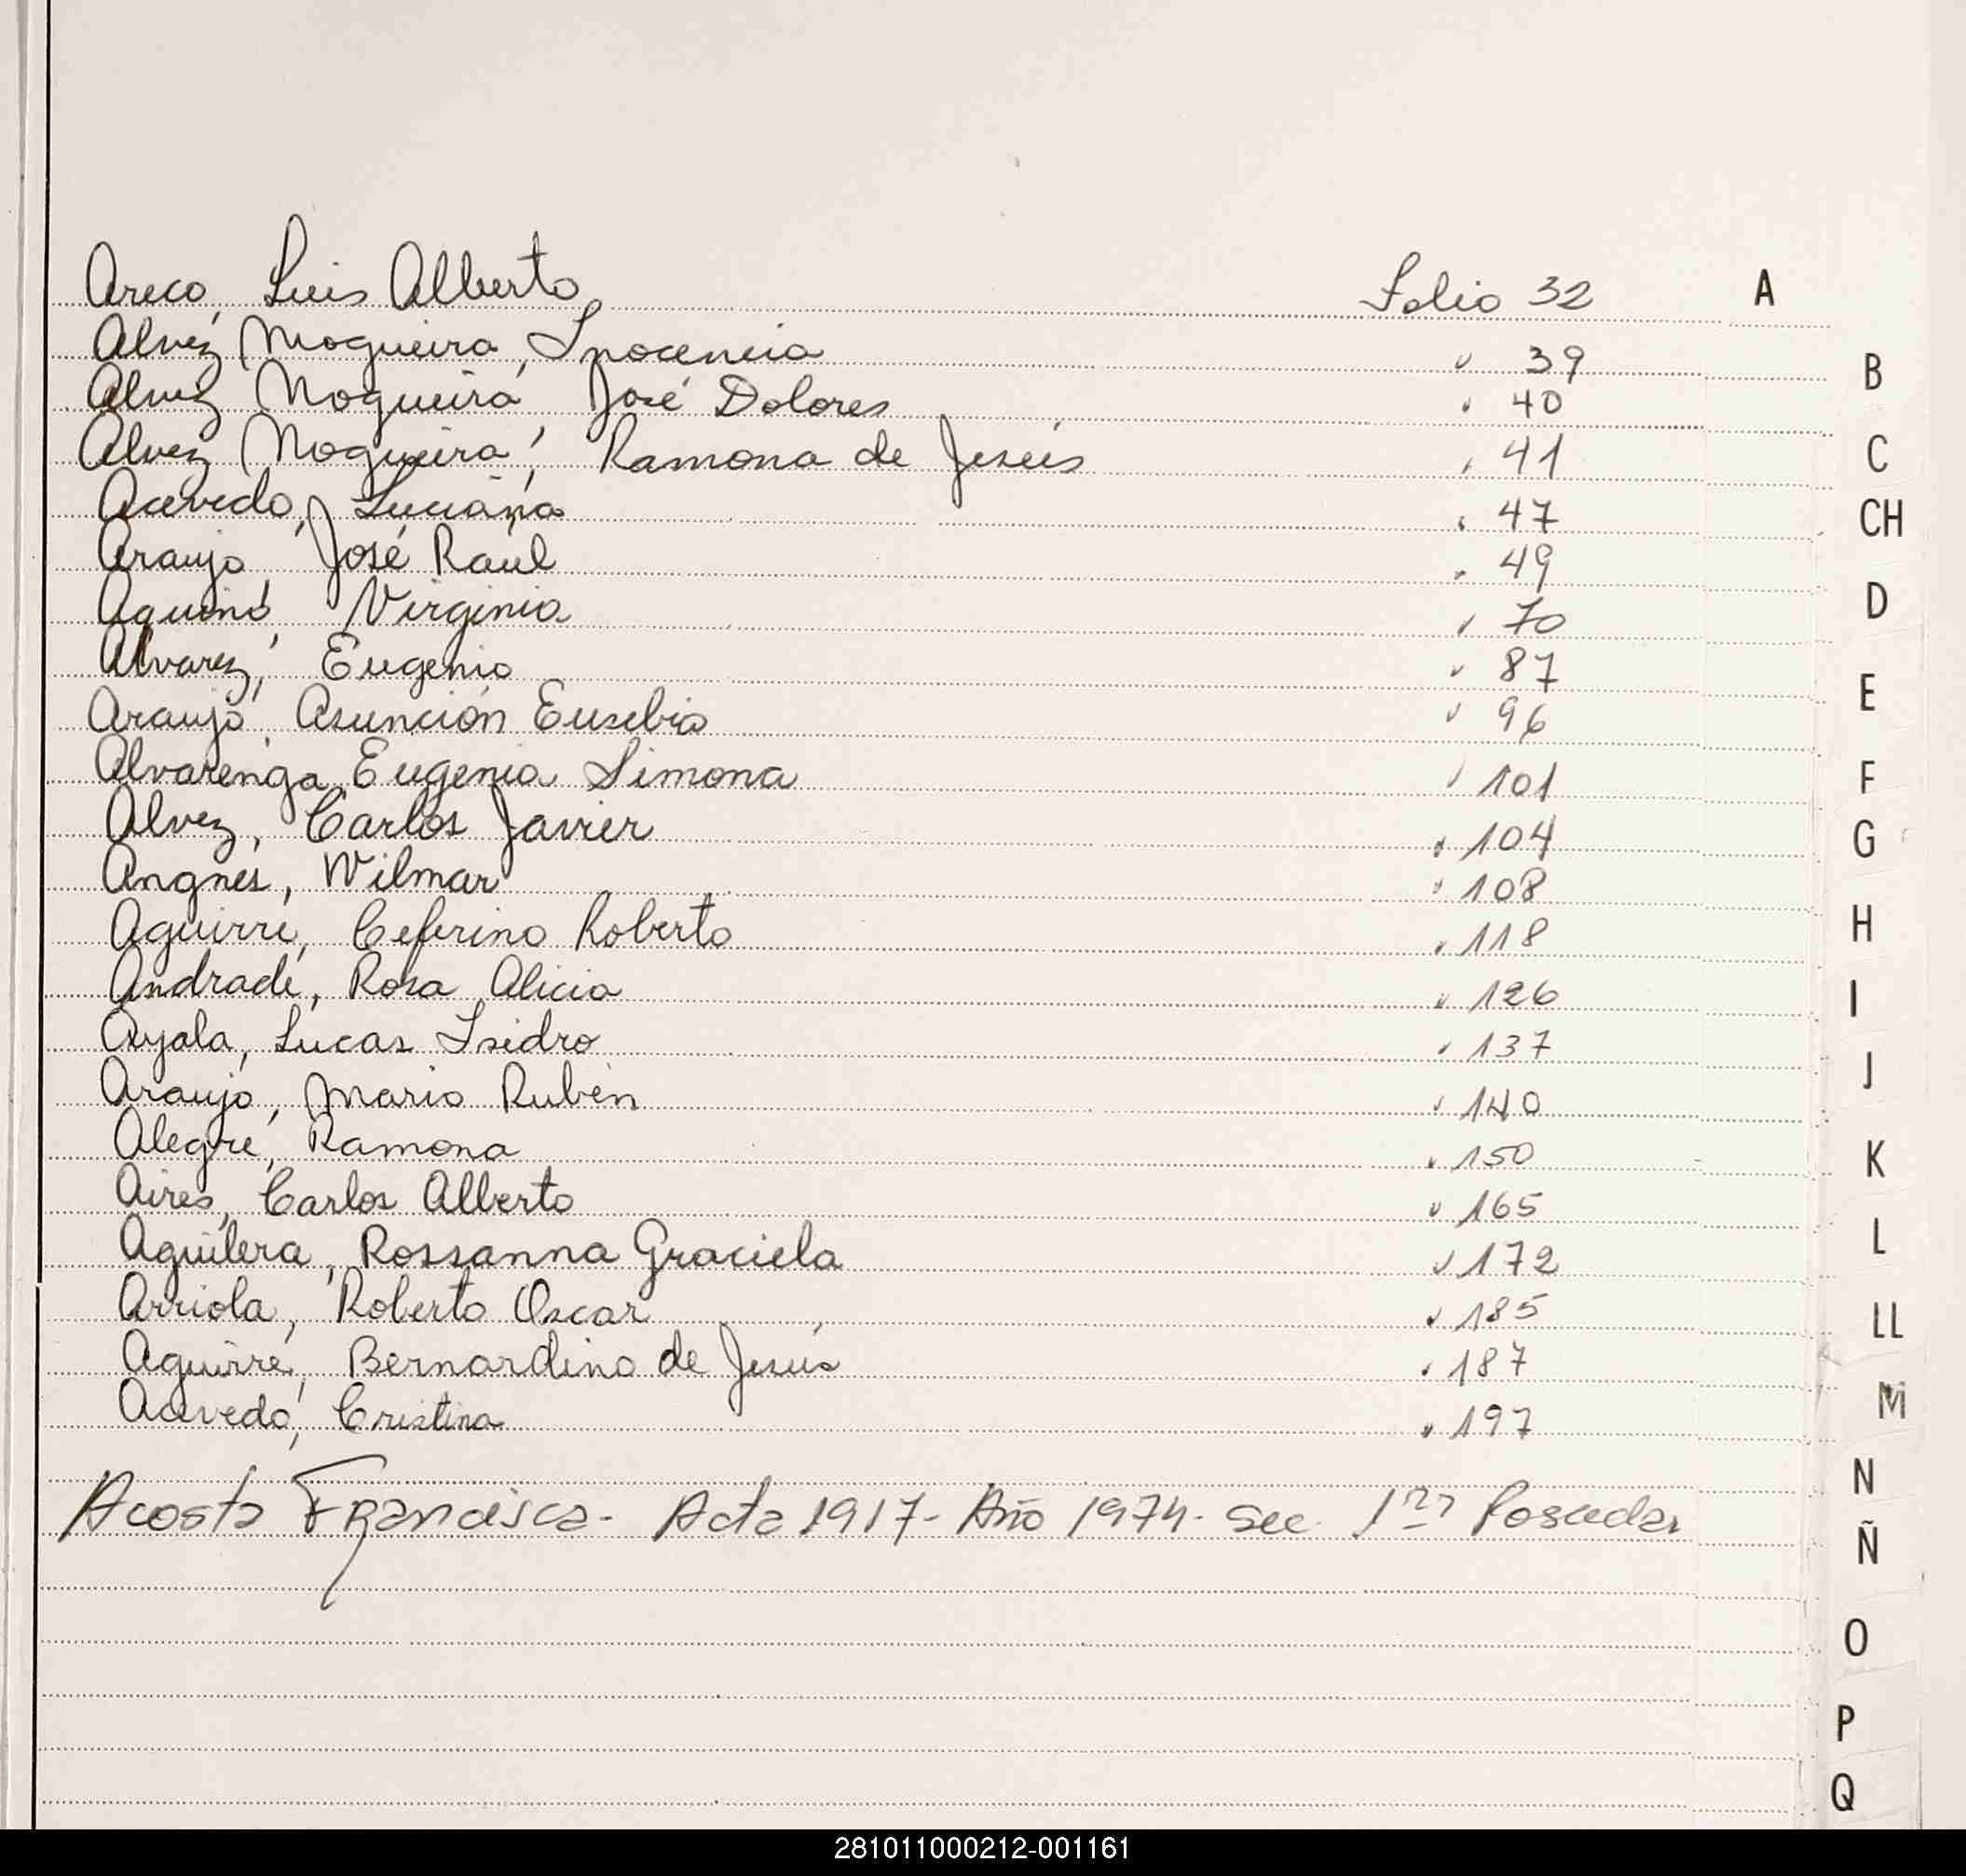 Areco, Luis Alberto Folio 32 A
Alvez Nogueira, Inocencia " 39 B
Alvez Nogueira, José Dolores " 40
Alvez Nogueira, Ramona de Jesús " 41 C
Acevedo, Luciana " 47 CH
Araujo, José Raúl " 49
Aquino, Virginia " 70 D
Alvarez, Eugenio " 87
Araujo, Asunción Eusebio " 96 E
Alvarenga, Eugenia Simona " 101 F
Alvez, Carlos Javier " 104 G
Angnes, Wilmar " 108
Aguirre, Ceferino Roberto " 118 H
Andrade, Rosa Alicia " 126 I
Ayala, Lucas Isidro " 137
Araujo, Mario Rubén " 140 J
Alegre, Ramona " 150 K
Aires, Carlos Alberto " 165
Aguilera, Rossanna Graciela " 172 L
Arriola, Roberto Oscar " 185 LL
Aguirre, Bernardino de Jesús " 187
Acevedo, Cristina " 197 M
N
Acosta Francisca - Acta 1917 - Año 1974 - Sec. 1ra Posadas
Ñ
O
P
Q
281011000212-001161